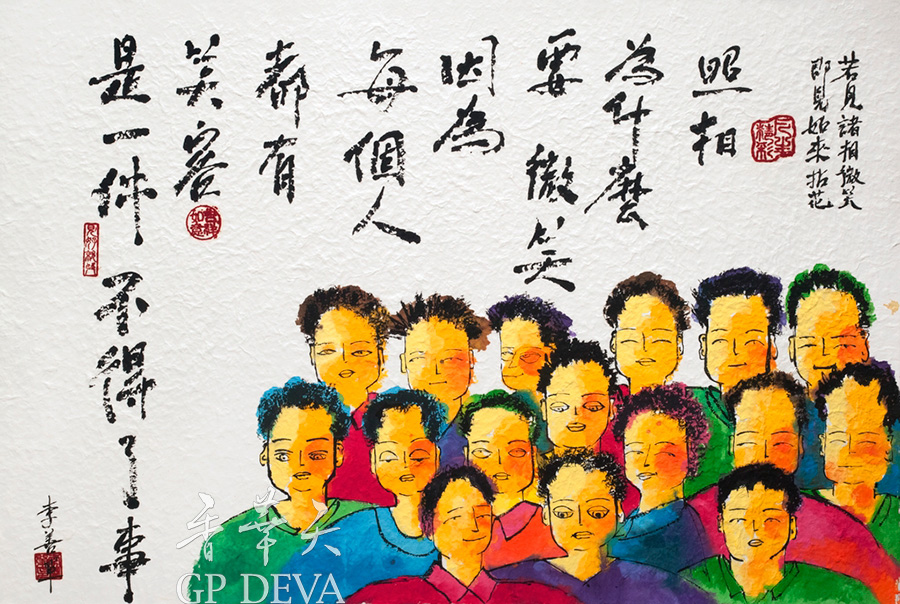 若見諸相微笑
即見如來拈花
照相
為什麼
要微笑
因為
每個人
都有
笑容
是一件不得了事
李善
香華天
GP DEVA